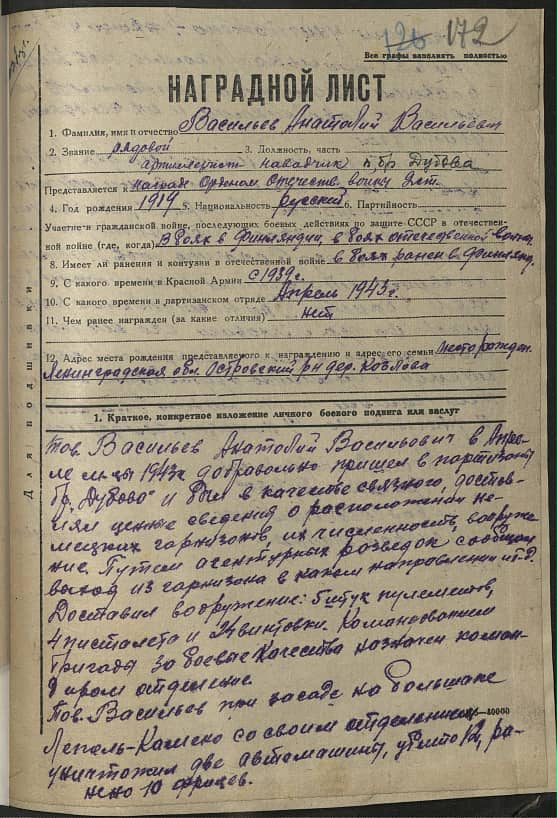 126 172
Все графы заполнять полностью
НАГРАДНОЙ ЛИСТ
1. Фамилия, имя и отчество Васильев Анатолий Васильевич
2. Звание рядовой 3. Должность, часть
артиллерист наводчик п/бр Дубова
Представляется к награде Орденом Отечеств. войны 2 ст.
4. Год рождения 1919 5. Национальность русский 6. Партийность
Участие в гражданской войне, последующих боевых действиях по защите СССР в отечествен-
ной войне (где, когда) В боях в Финляндии, в боях отечественной войны
8. Имеет ли ранения и контузии в отечественной войне в боях ранен в Финлянд.
9. С какого времени в Красной Армии с 1939 г.
10. С какого времени в партизанском отряде Апрель 1943 г.
11. Чем ранее награжден (за какие отличия) нет
12. Адрес места рождения представляемого к награждению и адрес его семьи место рожден.
Ленинградская обл. Островский р-н дер. Козлова
Для подшивки
1. Краткое, конкретное изложение личного боевого подвига или заслуг
Тов. Васильев Анатолий Васильович в Апре-
ле м-цы 1943 г. добравольно пришел в партизаны
бр. "Дубово" и был в качестве связного, достав-
лял ценные сведения о расположении не-
мецких гарнизонов, их численность, вооруже-
ние. Путем агентурных розведок сообщал
выход из гарнизона в каком направлении и т.д.
Доставил вооружение: 5 штук пулеметов,
4 писталета и 24 винтовки. Командованием
бригады за боевые качества назначен коман-
диром отделение.
Тов. Васильев при засаде на большаке
-40000
Лепель-Камено со своим отделением
уничтожил две автомашины, убито 12, ра-
нено 10 фрицев.